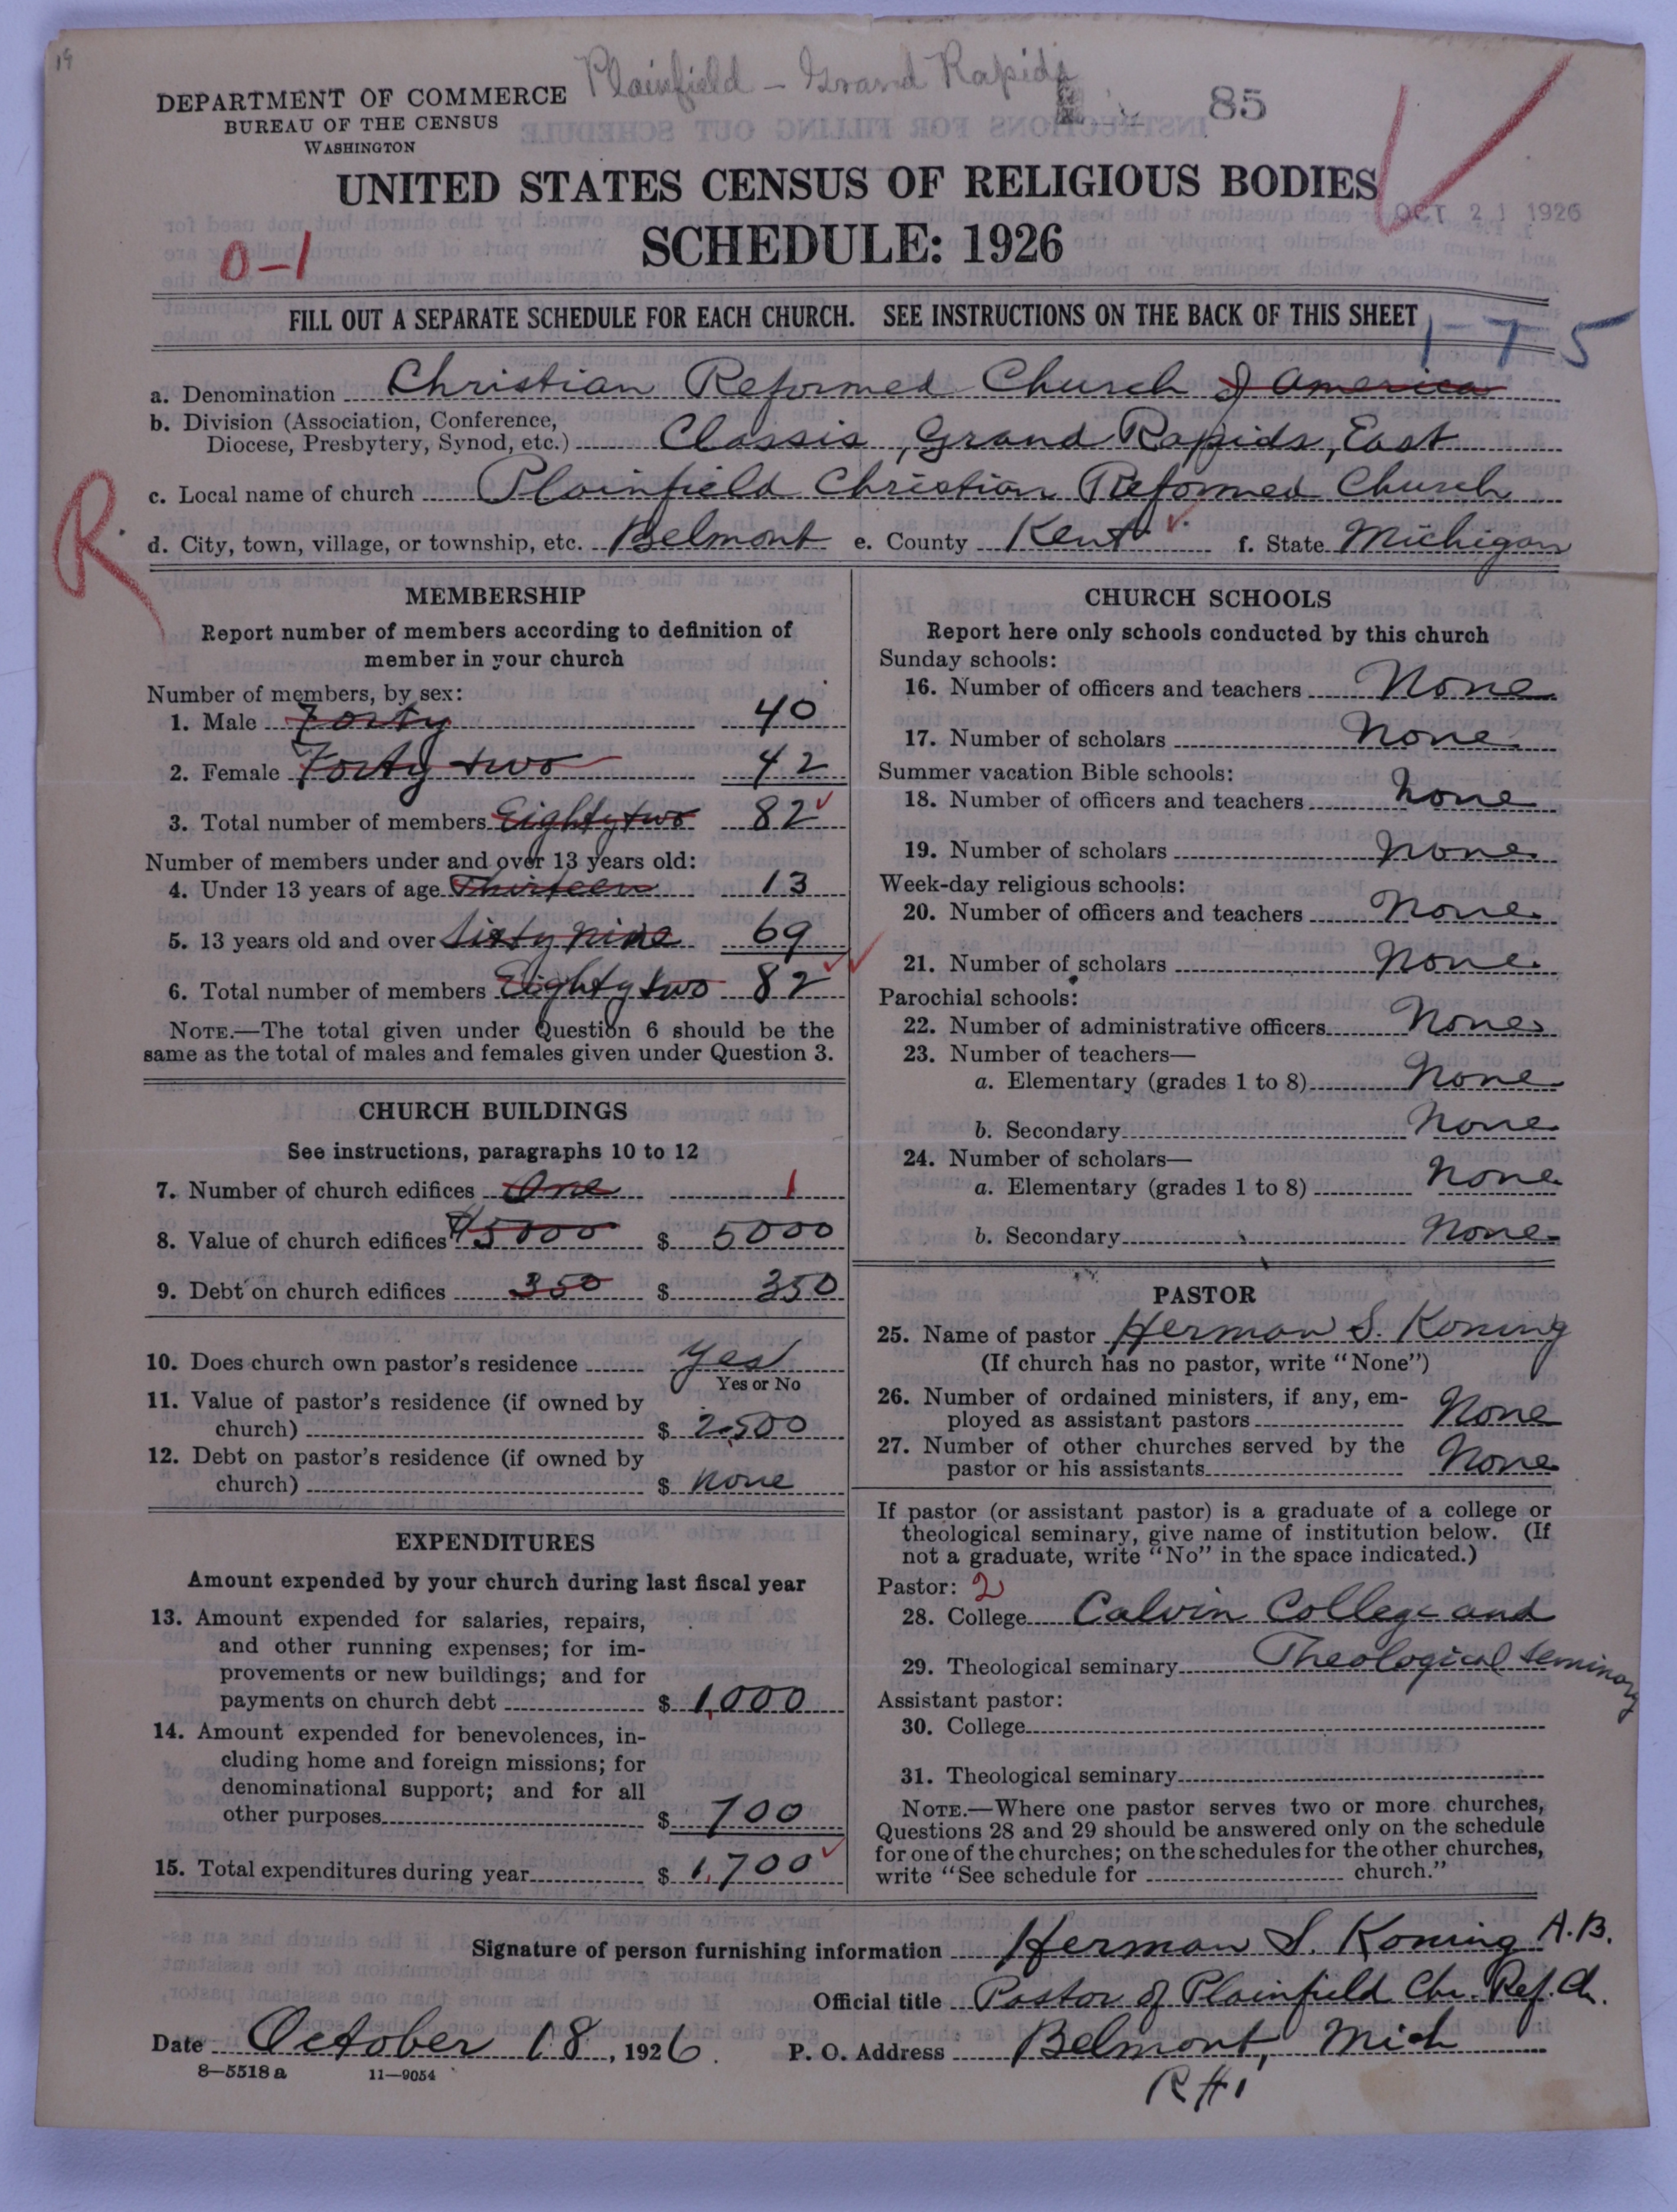 19
Plainfield - Grand Rapids
85
DEPARTMENT OF COMMERCE
BUREAU OF THE CENSUS
WASHINGTON
UNITED STATES CENSUS OF RELIGIOUS BODIES
OCT 21 1926
SCHEDULE: 1926
0-1
FILL OUT A SEPARATE SCHEDULE FOR EACH CHURCH. SEE INSTRUCTIONS ON THE BACK OF THIS SHEET
1-T5
a. Denomination Christian Reformed Church of America
b. Division (Association, Conference,
Diocese, Presbytery, Synod, etc.) Classis, Grand Rapids, East
c. Local name of church Plainfield Christian Reformed Church
R
d. City, town, village, or township, etc. Belmont e. County Kent f. State Michigan
MEMBERSHIP
Report number of members according to definition of
member in your church
Number of members, by sex:
1. Male Forty 40
2. Female Forty two 42
3. Total number of members Eighty two 82
Number of members under and over 13 years old:
4. Under 13 years of age Thirteen 13
5. 13 years old and over Sixty nine 69
6. Total number of members Eighty two 82
NOTE.—The total given under Question 6 should be the
same as the total of males and females given under Question 3.
CHURCH BUILDINGS
See instructions, paragraphs 10 to 12
7. Number of church edifices One 1
8. Value of church edifices $5000 $ 5000
9. Debt on church edifices 350 $ 350
10. Does church own pastor's residence Yes
Yes or No
11. Value of pastor's residence (if owned by
church) $ 2,500
12. Debt on pastor's residence (if owned by
church) $ None
EXPENDITURES
Amount expended by your church during last fiscal year
13. Amount expended for salaries, repairs,
and other running expenses; for im-
provements or new buildings; and for
payments on church debt $ 1,000
14. Amount expended for benevolences, in-
cluding home and foreign missions; for
denominational support; and for all
other purposes $ 700
15. Total expenditures during year $ 1,700
CHURCH SCHOOLS
Report here only schools conducted by this church
Sunday schools:
16. Number of officers and teachers None
17. Number of scholars None
Summer vacation Bible schools:
18. Number of officers and teachers None
19. Number of scholars None
Week-day religious schools:
20. Number of officers and teachers None
21. Number of scholars None
Parochial schools:
22. Number of administrative officers None
23. Number of teachers—
a. Elementary (grades 1 to 8) None
b. Secondary None
24. Number of scholars—
a. Elementary (grades 1 to 8) None
b. Secondary None
PASTOR
25. Name of pastor Herman S. Koning
(If church has no pastor, write "None")
26. Number of ordained ministers, if any, em-
ployed as assistant pastors None
27. Number of other churches served by the
pastor or his assistants None
If pastor (or assistant pastor) is a graduate of a college or
theological seminary, give name of institution below. (If
not a graduate, write "No" in the space indicated.)
Pastor: 2
28. College Calvin College and
29. Theological seminary Theological Seminary
Assistant pastor:
30. College
31. Theological seminary
NOTE.—Where one pastor serves two or more churches,
Questions 28 and 29 should be answered only on the schedule
for one of the churches; on the schedules for the other churches,
write "See schedule for church."
Signature of person furnishing information Herman S. Koning A.B.
Official title Pastor of Plainfield Chr. Ref. Ch.
Date October 18, 1926. P. O. Address Belmont, Mich
R#1
8—5518 a 11—9054